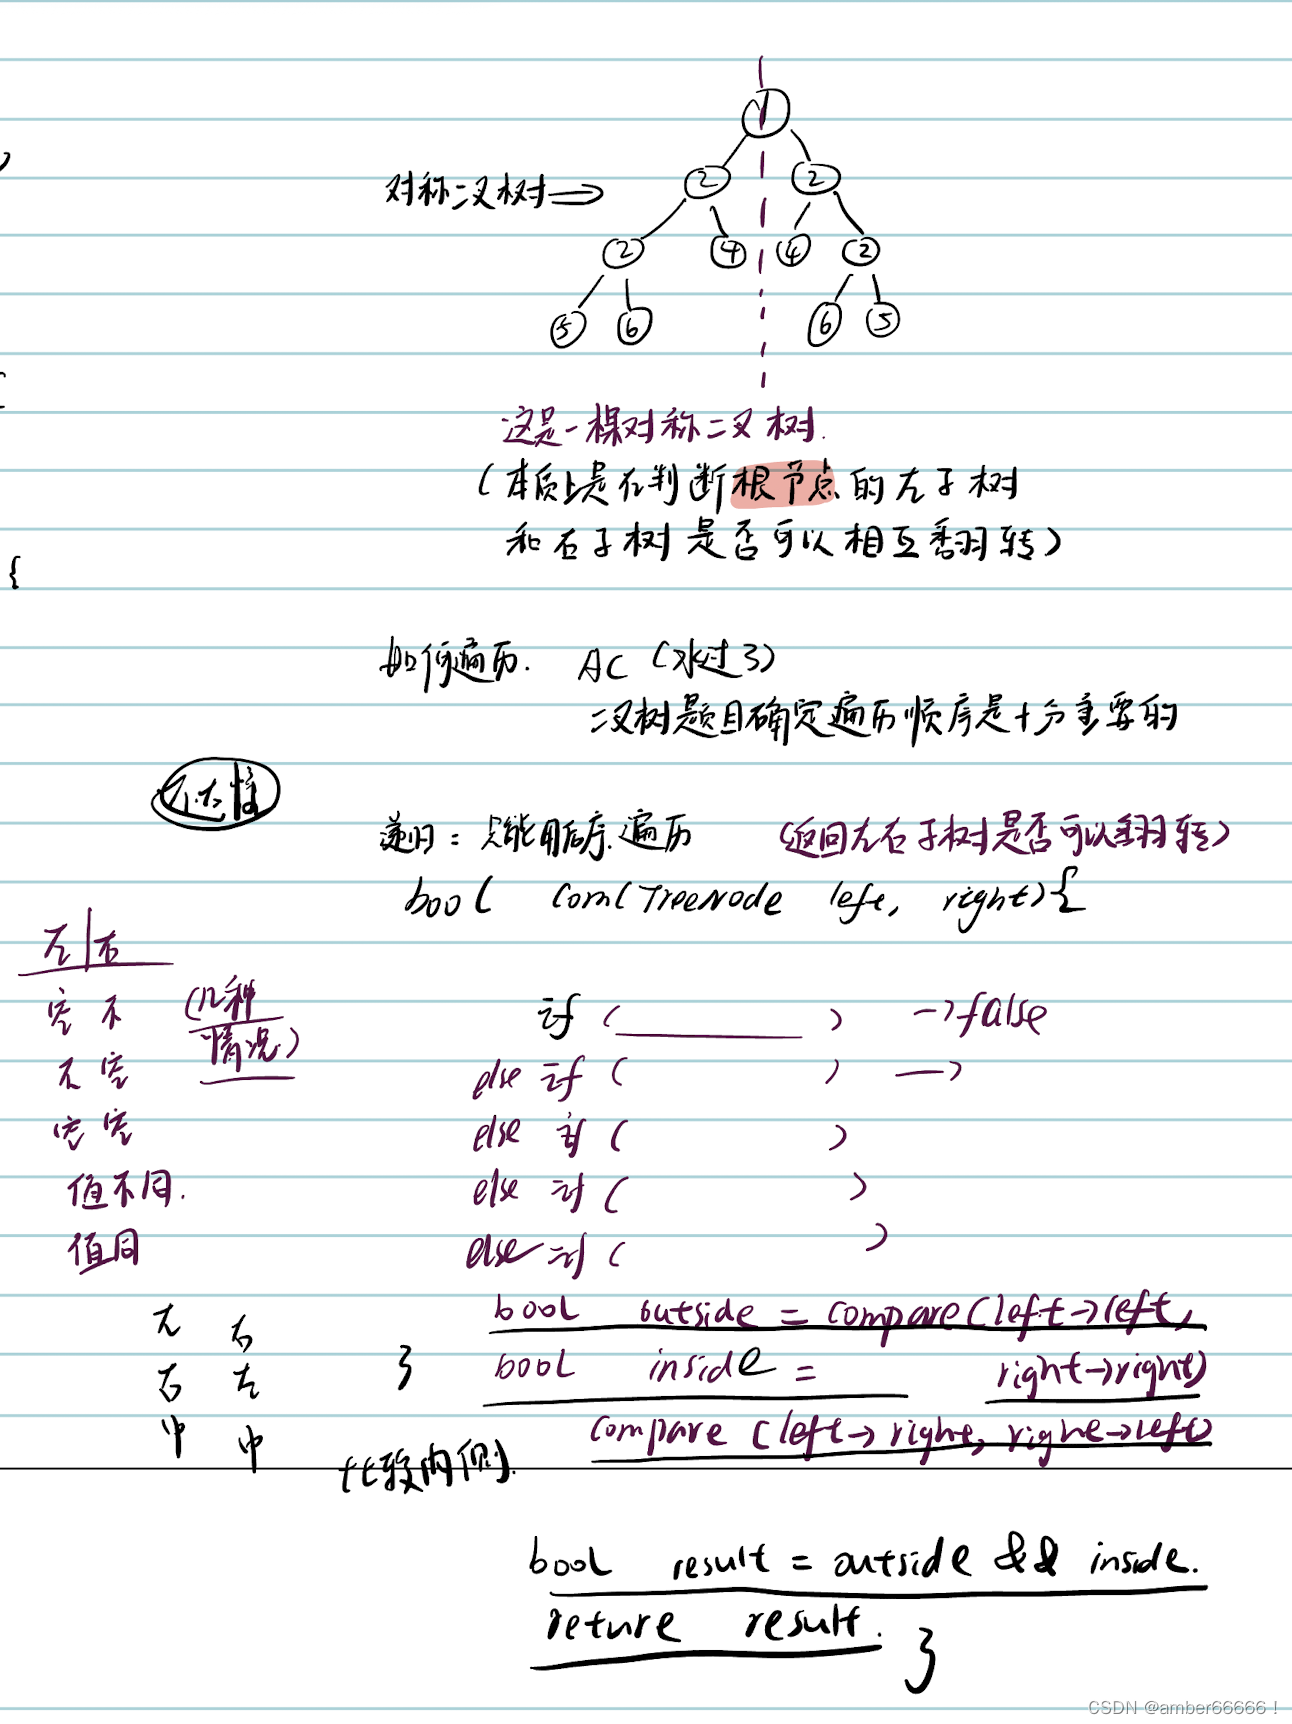 1
对称二叉树⇒ 2 2
2 4 4 2
5 6 6 5
这是一棵对称二叉树.
(本质上是在判断根节点的左子树
和右子树是否可以相互翻转)
{
如何遍历. AC (水过了)
二叉树题目确定遍历顺序是十分重要的
递归: 只能用后序遍历 (返回左右子树是否可以翻转)
bool com(TreeNode left, right){
左|右
空 不 (几种 if ( ) →false
情况)
不 空 else if ( ) →
空 空 else if ( )
值不同. else if ( )
值同 else if ( )
左 右 bool outside = compare(left→left,
右 左 } bool inside = right→right)
中 中 compare (left→right, right→left)
比较内侧.
bool result = outside && inside.
reture result. }
CSDN @amber66666!